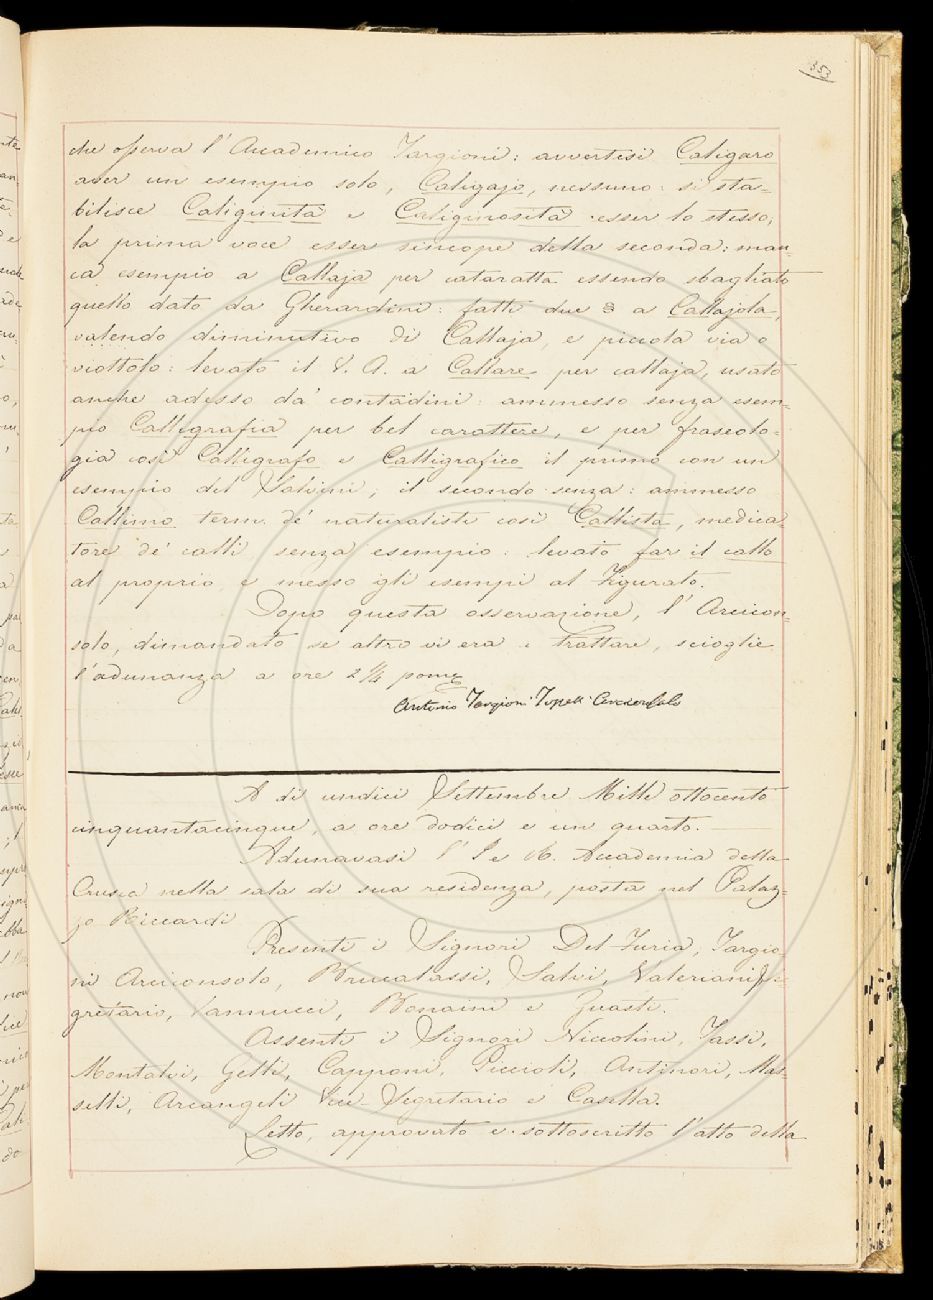 353
che osserva l'Accademico Targioni: avvertesi Caligaro
aver un esempio solo, Caligajo, nessuno: si sta-
bilisce Caliginità e Caliginosità esser lo stesso,
la prima voce esser sincope della seconda: man-
ca esempio a Callaja per cataratta essendo sbagliato
quello dato da Gherardini: fatti due § a Callajola,
valendo diminutivo di Callaja, e piccola via o
viottolo: levato il V. A. a Callare per callaja, usato
anche adesso da' contadini: ammesso senza esem-
pio Calligrafia per bel carattere, e per fraseolo-
gia così Calligrafo e Calligrafico il primo con un
esempio del Salvini; il secondo senza: ammesso
Callimo term. de' naturalisti così Callista, medica-
tore de' calli senza esempio: levato far il callo
al proprio e messo gli esempi al Figurato.
Dopo questa osservazione, l'Arcicon-
solo, dimandato se altro vi era a trattare, scioglie
l'adunanza a ore 2 1/4 pome
Antonio Targioni Tozzetti Arciconsolo
A dì undici Settembre Mille ottocento
cinquantacinque, a ore dodici e un quarto.
Adunavasi l'I e R. Accademia della
Crusca nella sala di sua residenza, posta nel Palaz-
zo Riccardi
Presenti i Signori Del Furia, Targio
ni Arciconsolo, Brucalassi, Salvi, Valeriani Se-
gretario, Vannucci, Bonaini e Guasti.
Assenti i Signori Niccolini, Tassi,
Montalvi, Gelli, Capponi, Piccioli, Antinori, Mas-
selli, Arcangeli Vice-Segretario e Casella.
Letto, approvato e sottoscritto l'atto della